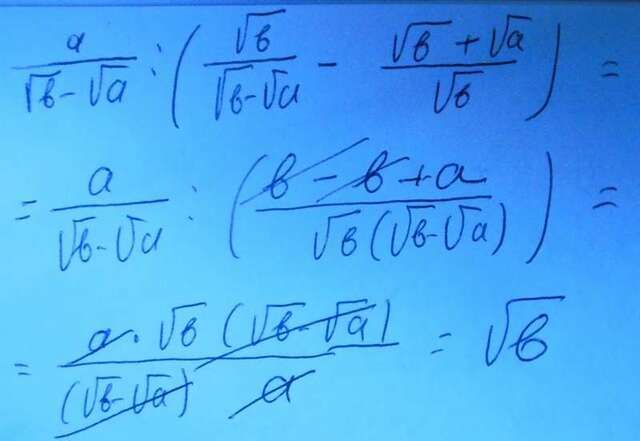 a/(√b-√a) : (√b/(√b-√a) - (√b+√a)/√b) =
= a/(√b-√a) : ((b-b+a)/(√b(√b-√a))) =
= (a·√b(√b-√a))/((√b-√a)a) = √b